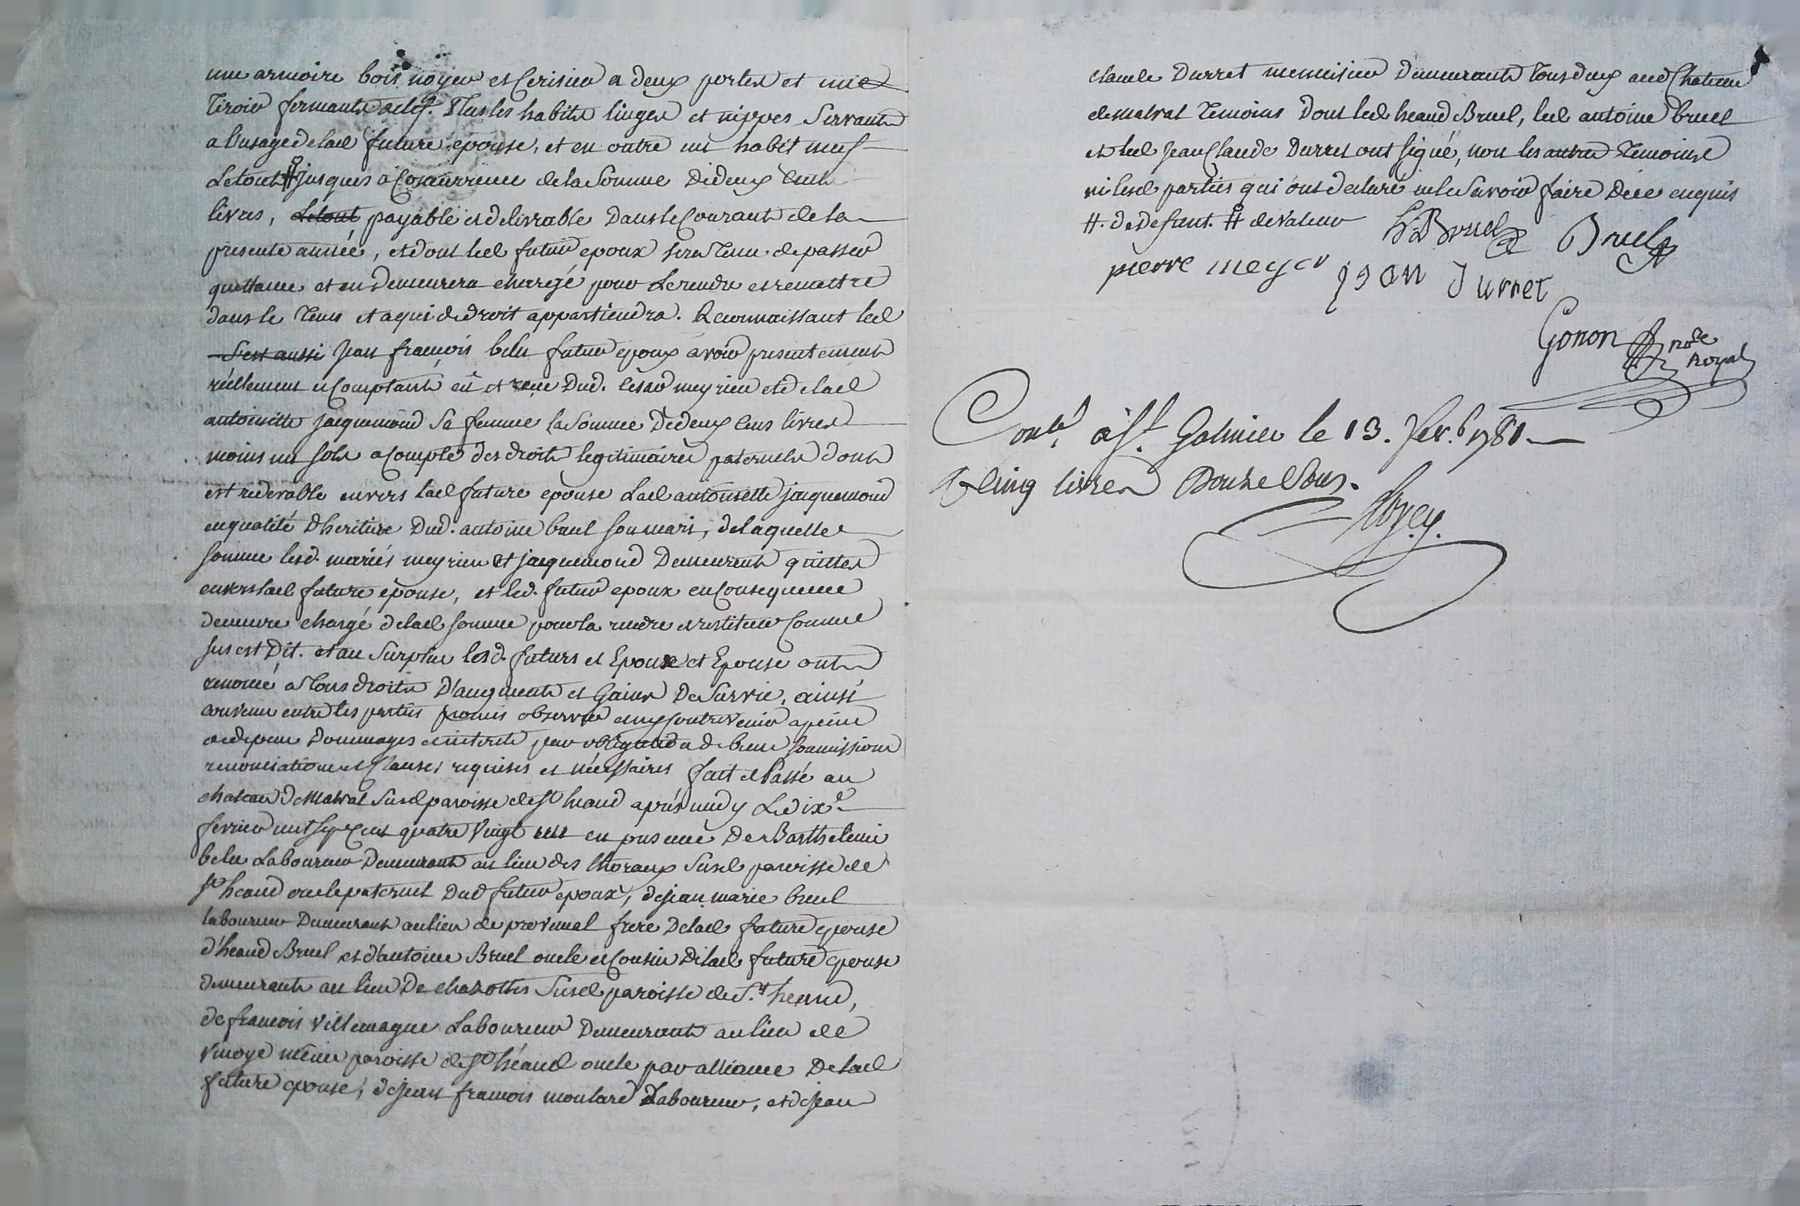 une armoire bois noyer et Cerisier a deux portes et un
Tiroir fermante a clef. Plus les habits linges et nippes Servants
a l'usage de lad future epouse, et en outre un habit neuf
Le tout # jusques a Concurrence de la Somme De deux Cents
livres, Le tout payable et delivrable Dans le Courant de la
presente année, et dont led futur epoux sera Tenu de passer
quittance et en Demeurera chargé pour Le rendre et remettre
dans le Tems et a qui de droit appartiendra. Reconnaissant led
S'est aussi Jean françois belu futur epoux avoir presentement
réellement et Comptant eû et reçu Dud. Cesar meyrieu et de lad
antoinette Jacquemond Sa femme la Somme De deux Cens livres
moins un sols a Compte des droits legitimaires paternels dont
est redevable envers lad future epouse Lad antoinette jacquemond
en qualité d'heritiere Dud. antoine bruel Son mari, de laquelle
Somme lesd. mariés meyrieu et jacquemond Demeurent quittes
envers lad future epouse, et led. futur epoux en Consequence
demeure chargé de lad Somme pour la rendre et restituer Comme
Sus est Dit. et au Surplus lesd. futurs et Epoux et Epouse ont
renoncé a Tous droits D'augments et Gains De Survie, ainsi
convenu entre les parties promis observer et n'y Contrevenir a peine
de Dommages et interets par obligation de biens Soumissions
renonciations et Clauses requises et nécessaires fait et Passé au
chateau de Malval Susd paroisse de St heand après midy Le dixe
fevrier mil sept Cens quatre Vingt un en presence De Barthelemi
belu Laboureur Demeurant au lieu des Choraux Susd paroisse de
St heand oncle paternel Dud futur epoux, de jean marie bruel
laboureur Demeurant au lieu de provenal frere De lad future epouse
d'heand Bruel et d'antoine Bruel oncle et Cousin De lad future epouse
demeurants au lieu De chazottes Susd paroisse de St heand,
de françois Villemagne Laboureur Demeurant au lieu de
même paroisse de St héand oncle par alliance De lad
future epouse, de Jean françois moulard Laboureur, et de Jean
claude Durret menuisier Demeurants Tous deux aud Chateau
de malval Temoins Dont led heand Bruel, led antoine bruel
et led Jean Claude Durret ont signé, non les autres Temoins
ni lesd parties qui ont declaré ne le Savoir faire De ce enquis
#. de defunt. # de valeur
h Bruel Bruel
pierre meyer jean Durret
Gonon nore Royal
Conlé à St. Galmier le 13. fer. 1781
R Cinq livres Douze Sous.